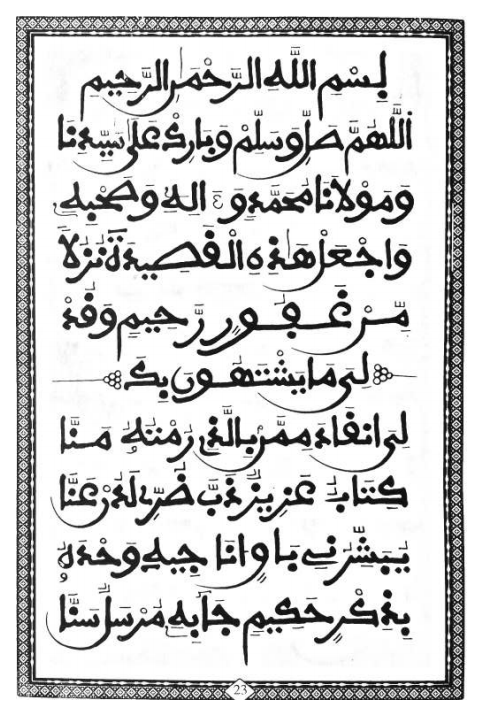 بِسْمِ اللَّهِ الرَّحْمَنِ الرَّحِيمِ
اَللَّهُمَّ صَلِّ وَسَلِّمْ وَبَارِكْ عَلَى سَيِّدِنَا
وَمَوْلَانَا مُحَمَّدٍ وَءَالِهِ وَصَحْبِهِ
وَاجْعَلْ هَذِهِ الْقَصِيدَةَ نُزُلاً
مِّنْ غَفُورٍ رَّحِيمٍ وَقُدْ
لِي مَا يَشْتَهُونَ بِكَ
لِي انْقَادَ مِمَّنْ بِالَّذِي رُمْتُهُ مَنَّا
كِتَابٌ عَزِيزٌ ذَبَّ عَنَّا
يُبَشِّرُنِي بَاقٍ أُنَاجِيهِ وَحْدَهُ
بِذِكْرٍ حَكِيمٍ جَا بِهِ مُرْسَلٌ سَنَّا
23